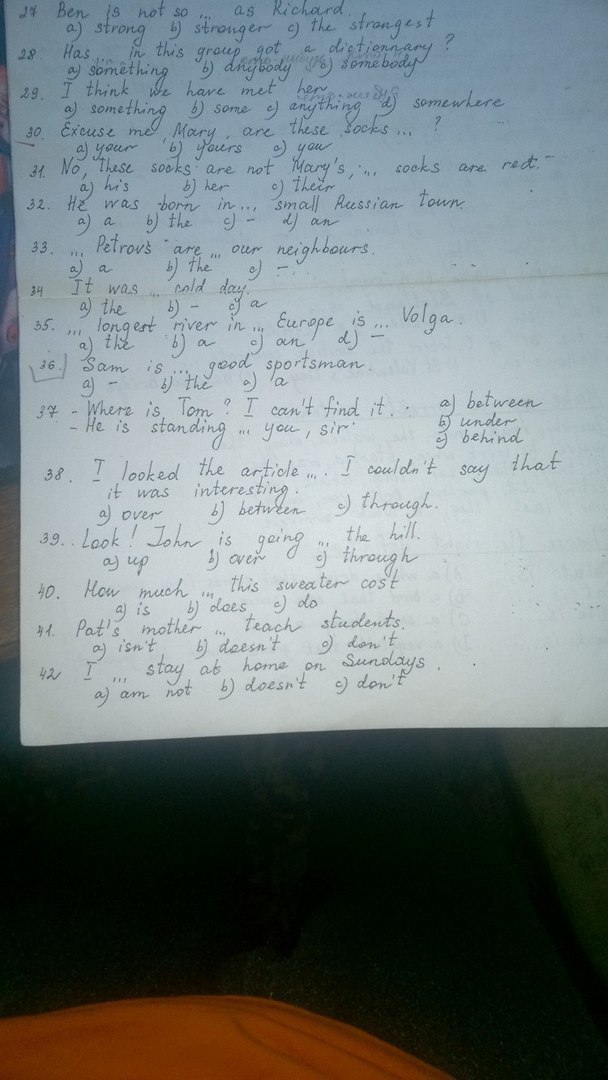 27 Ben is not so ... as Richard
a) strong b) stronger c) the strongest
28 Has ... in this group got a dictionnary ?
a) something b) anybody c) somebody
29. I think we have met her
a) something b) some c) anything d) somewhere
30. Excuse me, Mary, are these socks ... ?
a) your b) yours c) you
31. No, these socks are not Mary's, ... socks are red.
a) his b) her c) their
32. He was born in ... small Russian town.
a) a b) the c) - d) an
33. ... Petrovs are ... our neighbours.
a) a b) the c) -
34 It was ... cold day.
a) the b) - c) a
35. ... longest river in ... Europe is ... Volga.
a) the b) a c) an d) -
36. Sam is ... good sportsman.
a) - b) the c) a
37 - Where is Tom? I can't find it. a) between
- He is standing ... you, sir b) under
c) behind
38. I looked the article ... . I couldn't say that
it was interesting.
a) over b) between c) through.
39.. Look! John is going ... the hill.
a) up b) over c) through
40. How much ... this sweater cost
a) is b) does c) do
41. Pat's mother ... teach students.
a) isn't b) doesn't c) don't
42 I ... stay at home on Sundays.
a) am not b) doesn't c) don't